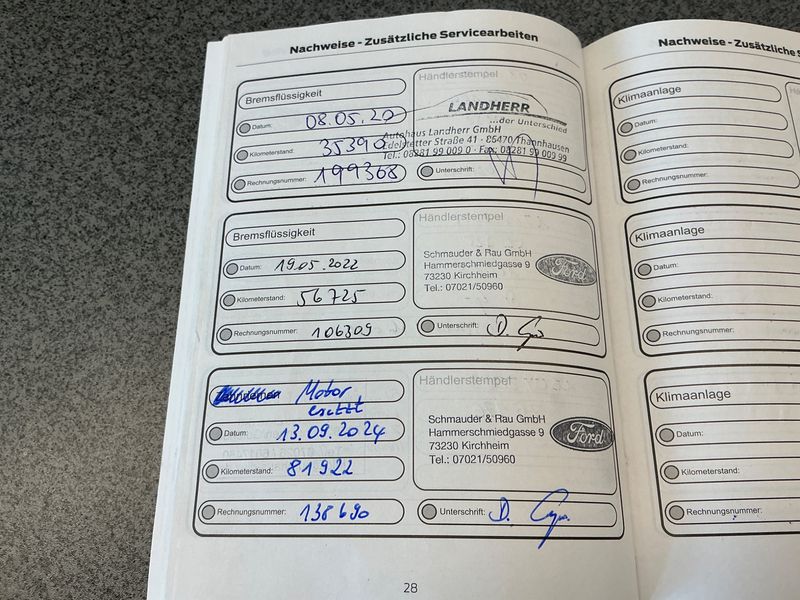 Nachweise - Zusätzliche Servicearbeiten
Bremsflüssigkeit
Datum: 08.05.20
Kilometerstand: 35390
Rechnungsnummer: 199368
Händlerstempel
LANDHERR
...der Unterschied
Autohaus Landherr GmbH
Edelstetter Straße 41 - 86470 Thannhausen
Tel.: 08281 99 009 0 · Fax: 08281 99 009 99
Unterschrift:
Bremsflüssigkeit
Datum: 19.05.2022
Kilometerstand: 56725
Rechnungsnummer: 106309
Händlerstempel
Schmauder & Rau GmbH
Hammerschmiedgasse 9
73230 Kirchheim
Tel.: 07021/50960
Ford
Unterschrift: D.
Motor
ersetzt
Datum: 13.09.2024
Kilometerstand: 81922
Rechnungsnummer: 138690
Händlerstempel
Schmauder & Rau GmbH
Hammerschmiedgasse 9
73230 Kirchheim
Tel.: 07021/50960
Ford
Unterschrift: D.
28
Nachweise - Zusätzliche S
Klimaanlage
Datum:
Kilometerstand:
Rechnungsnummer:
Klimaanlage
Datum:
Kilometerstand:
Rechnungsnummer:
Klimaanlage
Datum:
Kilometerstand:
Rechnungsnummer: